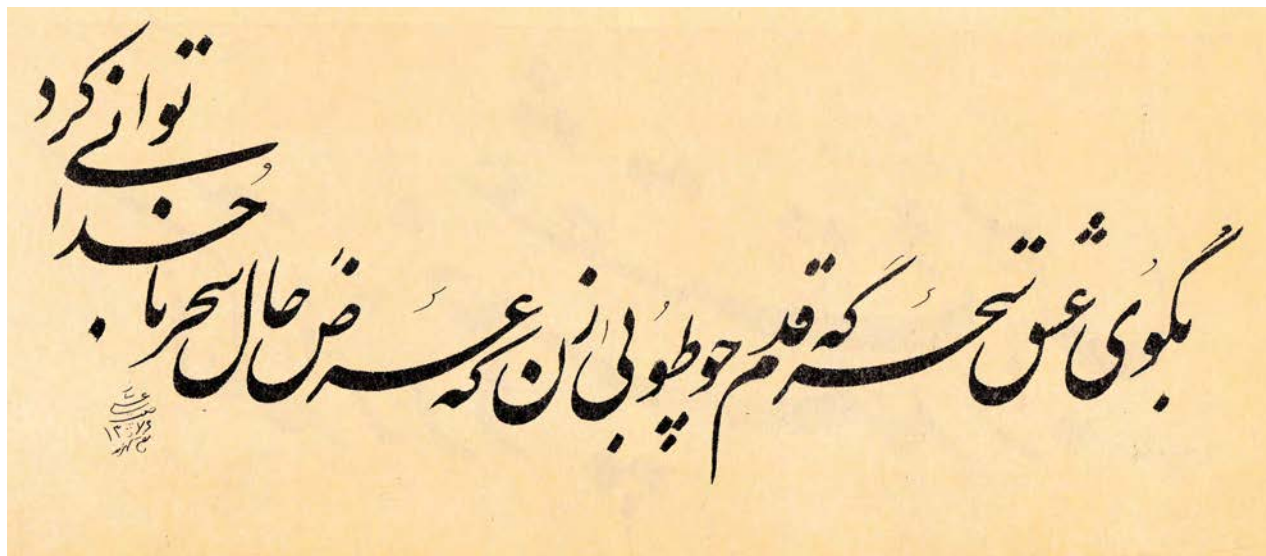 بکوی عشق سحرگه قدم چو طوبی زن که عرض حال سحر با خدا توانی کرد